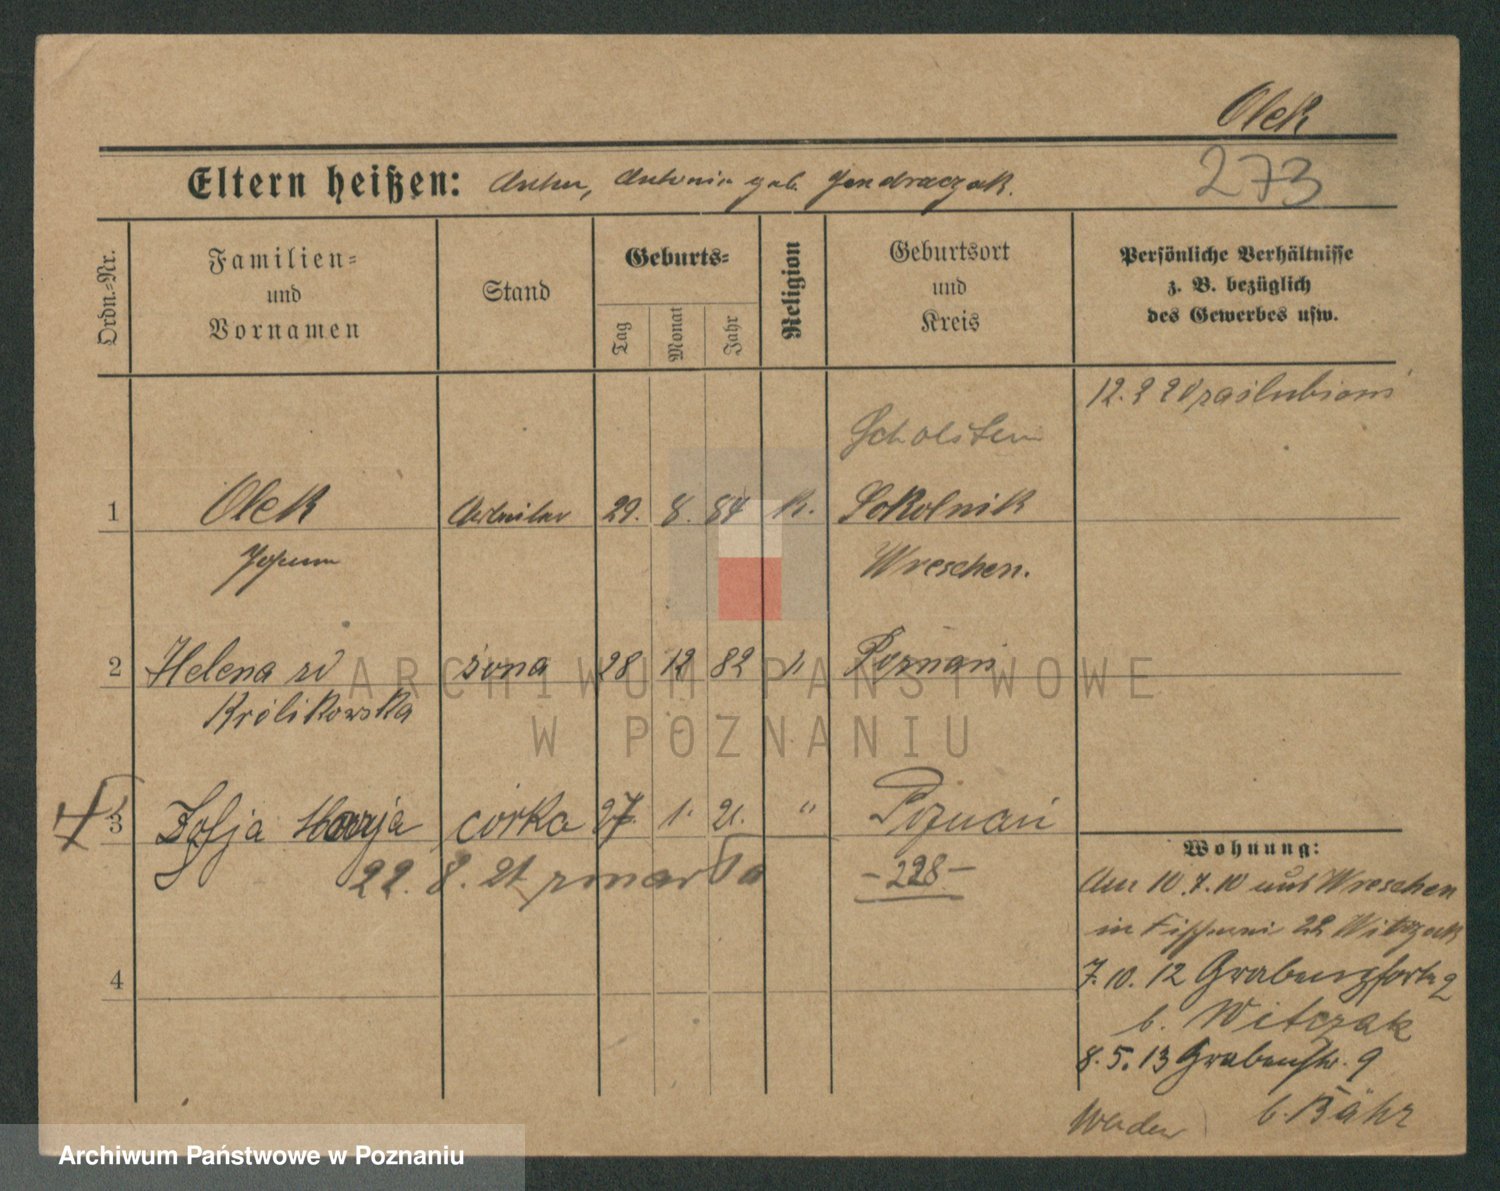 Olek
273
Eltern heißen: Antonie geb. Jendraczak.
Ordn.-Nr.
Familien- und Vornamen
Stand
Geburts-
Tag
Monat
Jahr
Religion
Geburtsort und Kreis
Persönliche Verhältnisse z. B. bezüglich des Gewerbes usw.
12. 2 20 zaślubieni
1
Olek
Arbeiter
29. 8. 84 k.
Sokolnik
Wreschen.
2
Helena
żona
28 12 82 "
Poznań
Królikowska
3
Zofja Marja
córka
27. 1. 21. "
Poznań
22. 8. 21 zmarła
-228-
4
Wohnung:
Am 10.7.10 aus Wreschen
in Fischerei 22 Witczak
7.10.12 Grabenpforte 2
b. Witczak
8.5.13 Grabenstr. 9
b. Bähr
ARCHIWUM PAŃSTWOWE
W POZNANIU
Archiwum Państwowe w Poznaniu